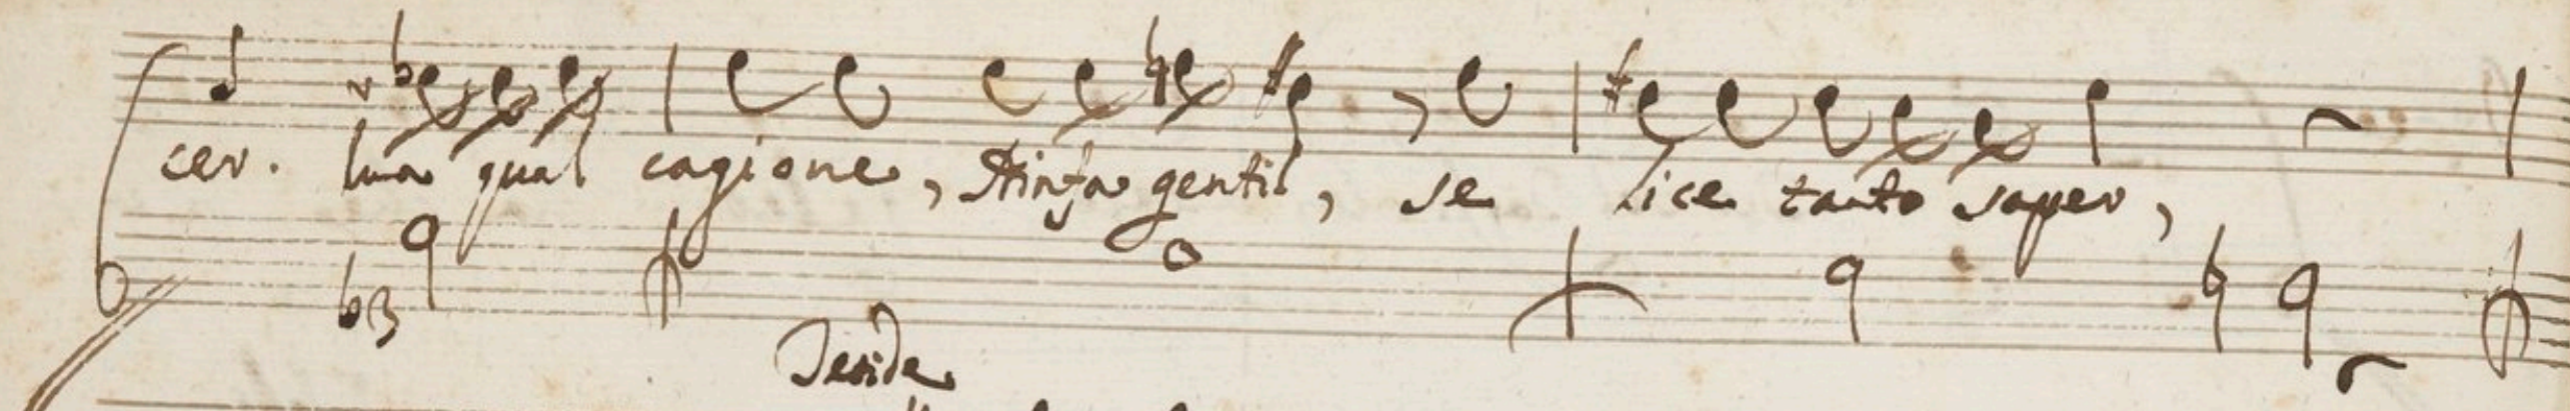 cer. ma qual cagione, Ninfa gentil, se lice tanto saper,